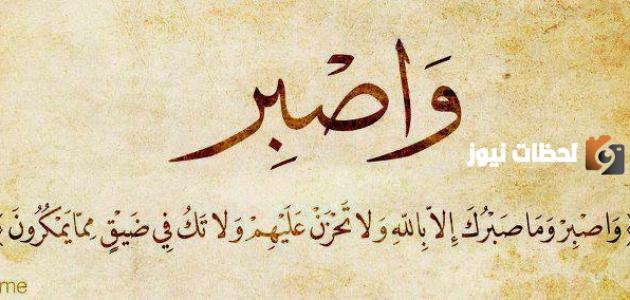 وَاصْبِر
لحظات نيوز
﴿ وَاصْبِرْ وَمَا صَبْرُكَ إِلاَّ بِاللّهِ وَلاَ تَحْزَنْ عَلَيْهِمْ وَلاَ تَكُ فِي ضَيْقٍ مِمَّا يَمْكُرُونَ ﴾
me